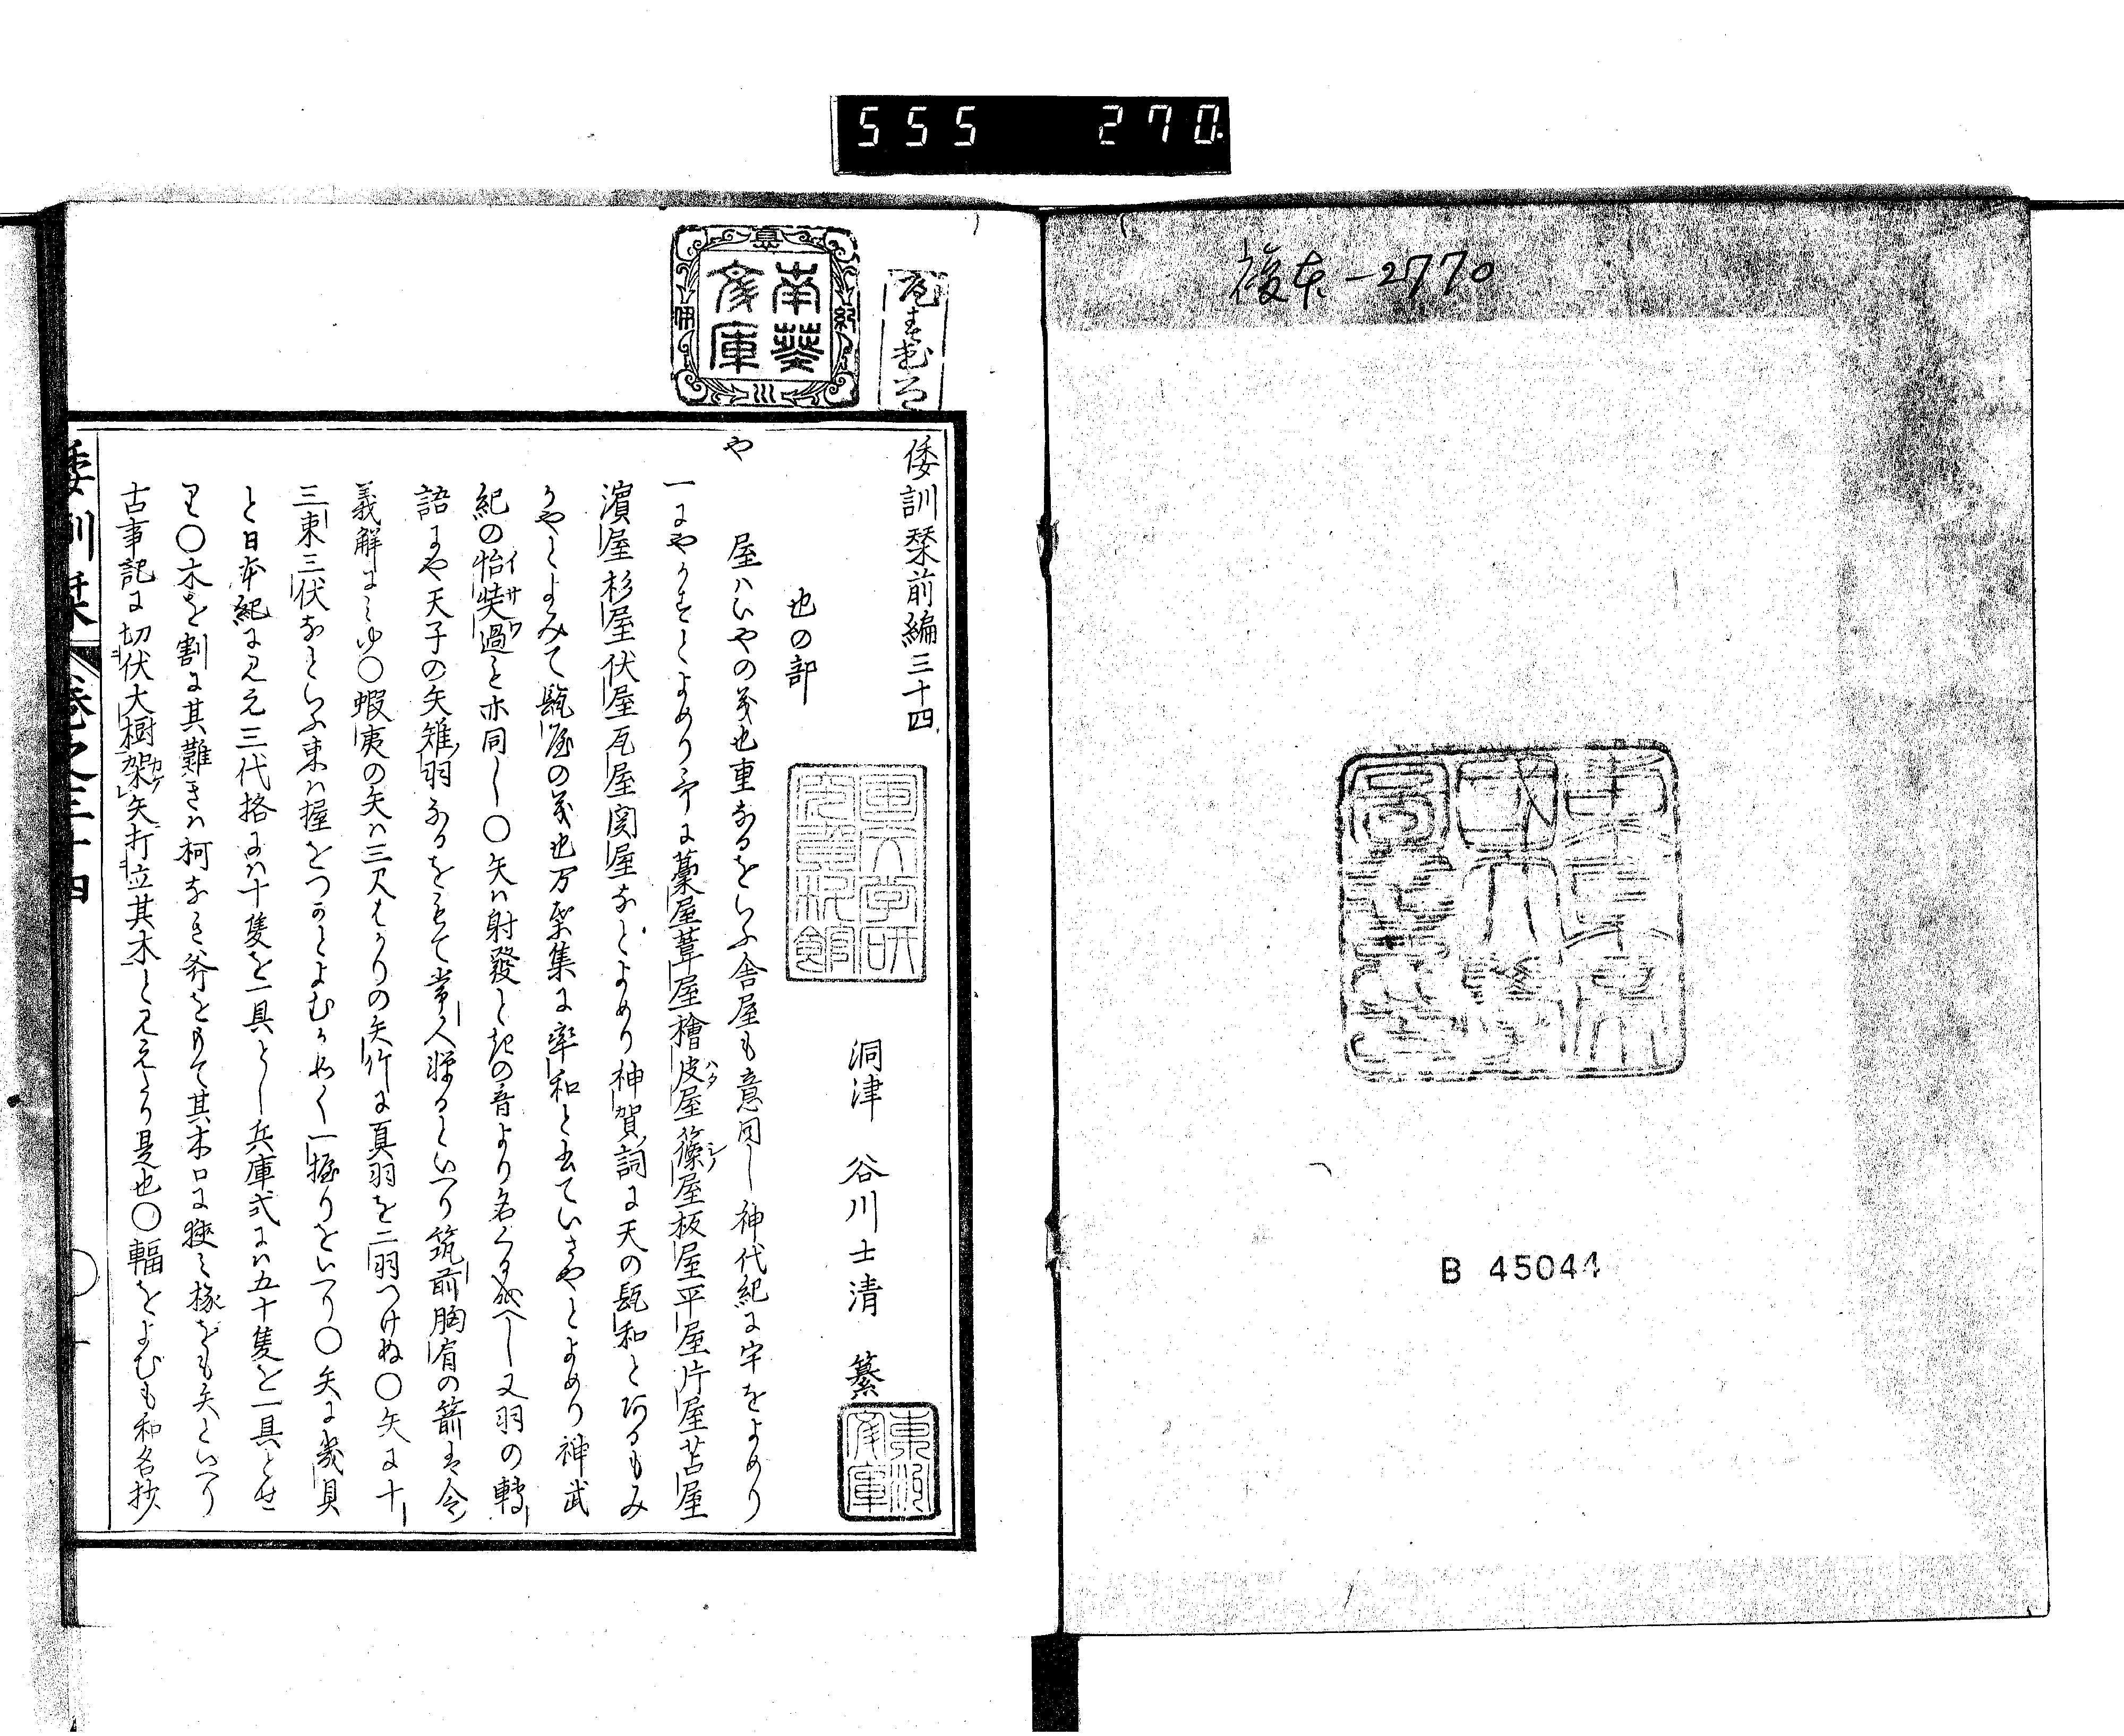 555 270.
複本-2770
B 45044
南葵文庫
倭訓栞前編三十四
洞津 谷川士清 纂
也の部
や
屋ハいやの義也重なるをいふ舎屋も意同し神代紀に宇をよめり
一にやかすとよめり
藁屋葦屋檜皮屋篠屋板屋平屋片屋苫屋
濱屋杉屋伏屋瓦屋関屋なとよめり神賀詞に天の𤭖和とあるもみ
かやとよみて𤭖屋の義也万葉集に率和と書ていさやとよめり神武
紀の怡奘過と亦同し〇矢ハ射發と訛の音より名くる成へし又羽の轉
語にや天子の矢雉羽なるをもて常人憚るといへり筑前胸肩の箭は令
義解にみゆ〇蝦夷の矢ハ三尺はかりの矢竹に真羽を二羽つけぬ〇矢に十
三束三伏なといふ束ハ握をつかとよむか如く一握りをいへり〇矢に幾具
と日本紀に見え三代格にハ十隻を一具とし兵庫式にハ五十隻を一具とせ
り〇木を割に其難きハ柯なき斧をもて其木口に狹み椓をも矢といへり
古事記に切伏大樹架矢打立其木と見えたり是也〇輻をよむも和名抄
倭訓栞 巻之三十四